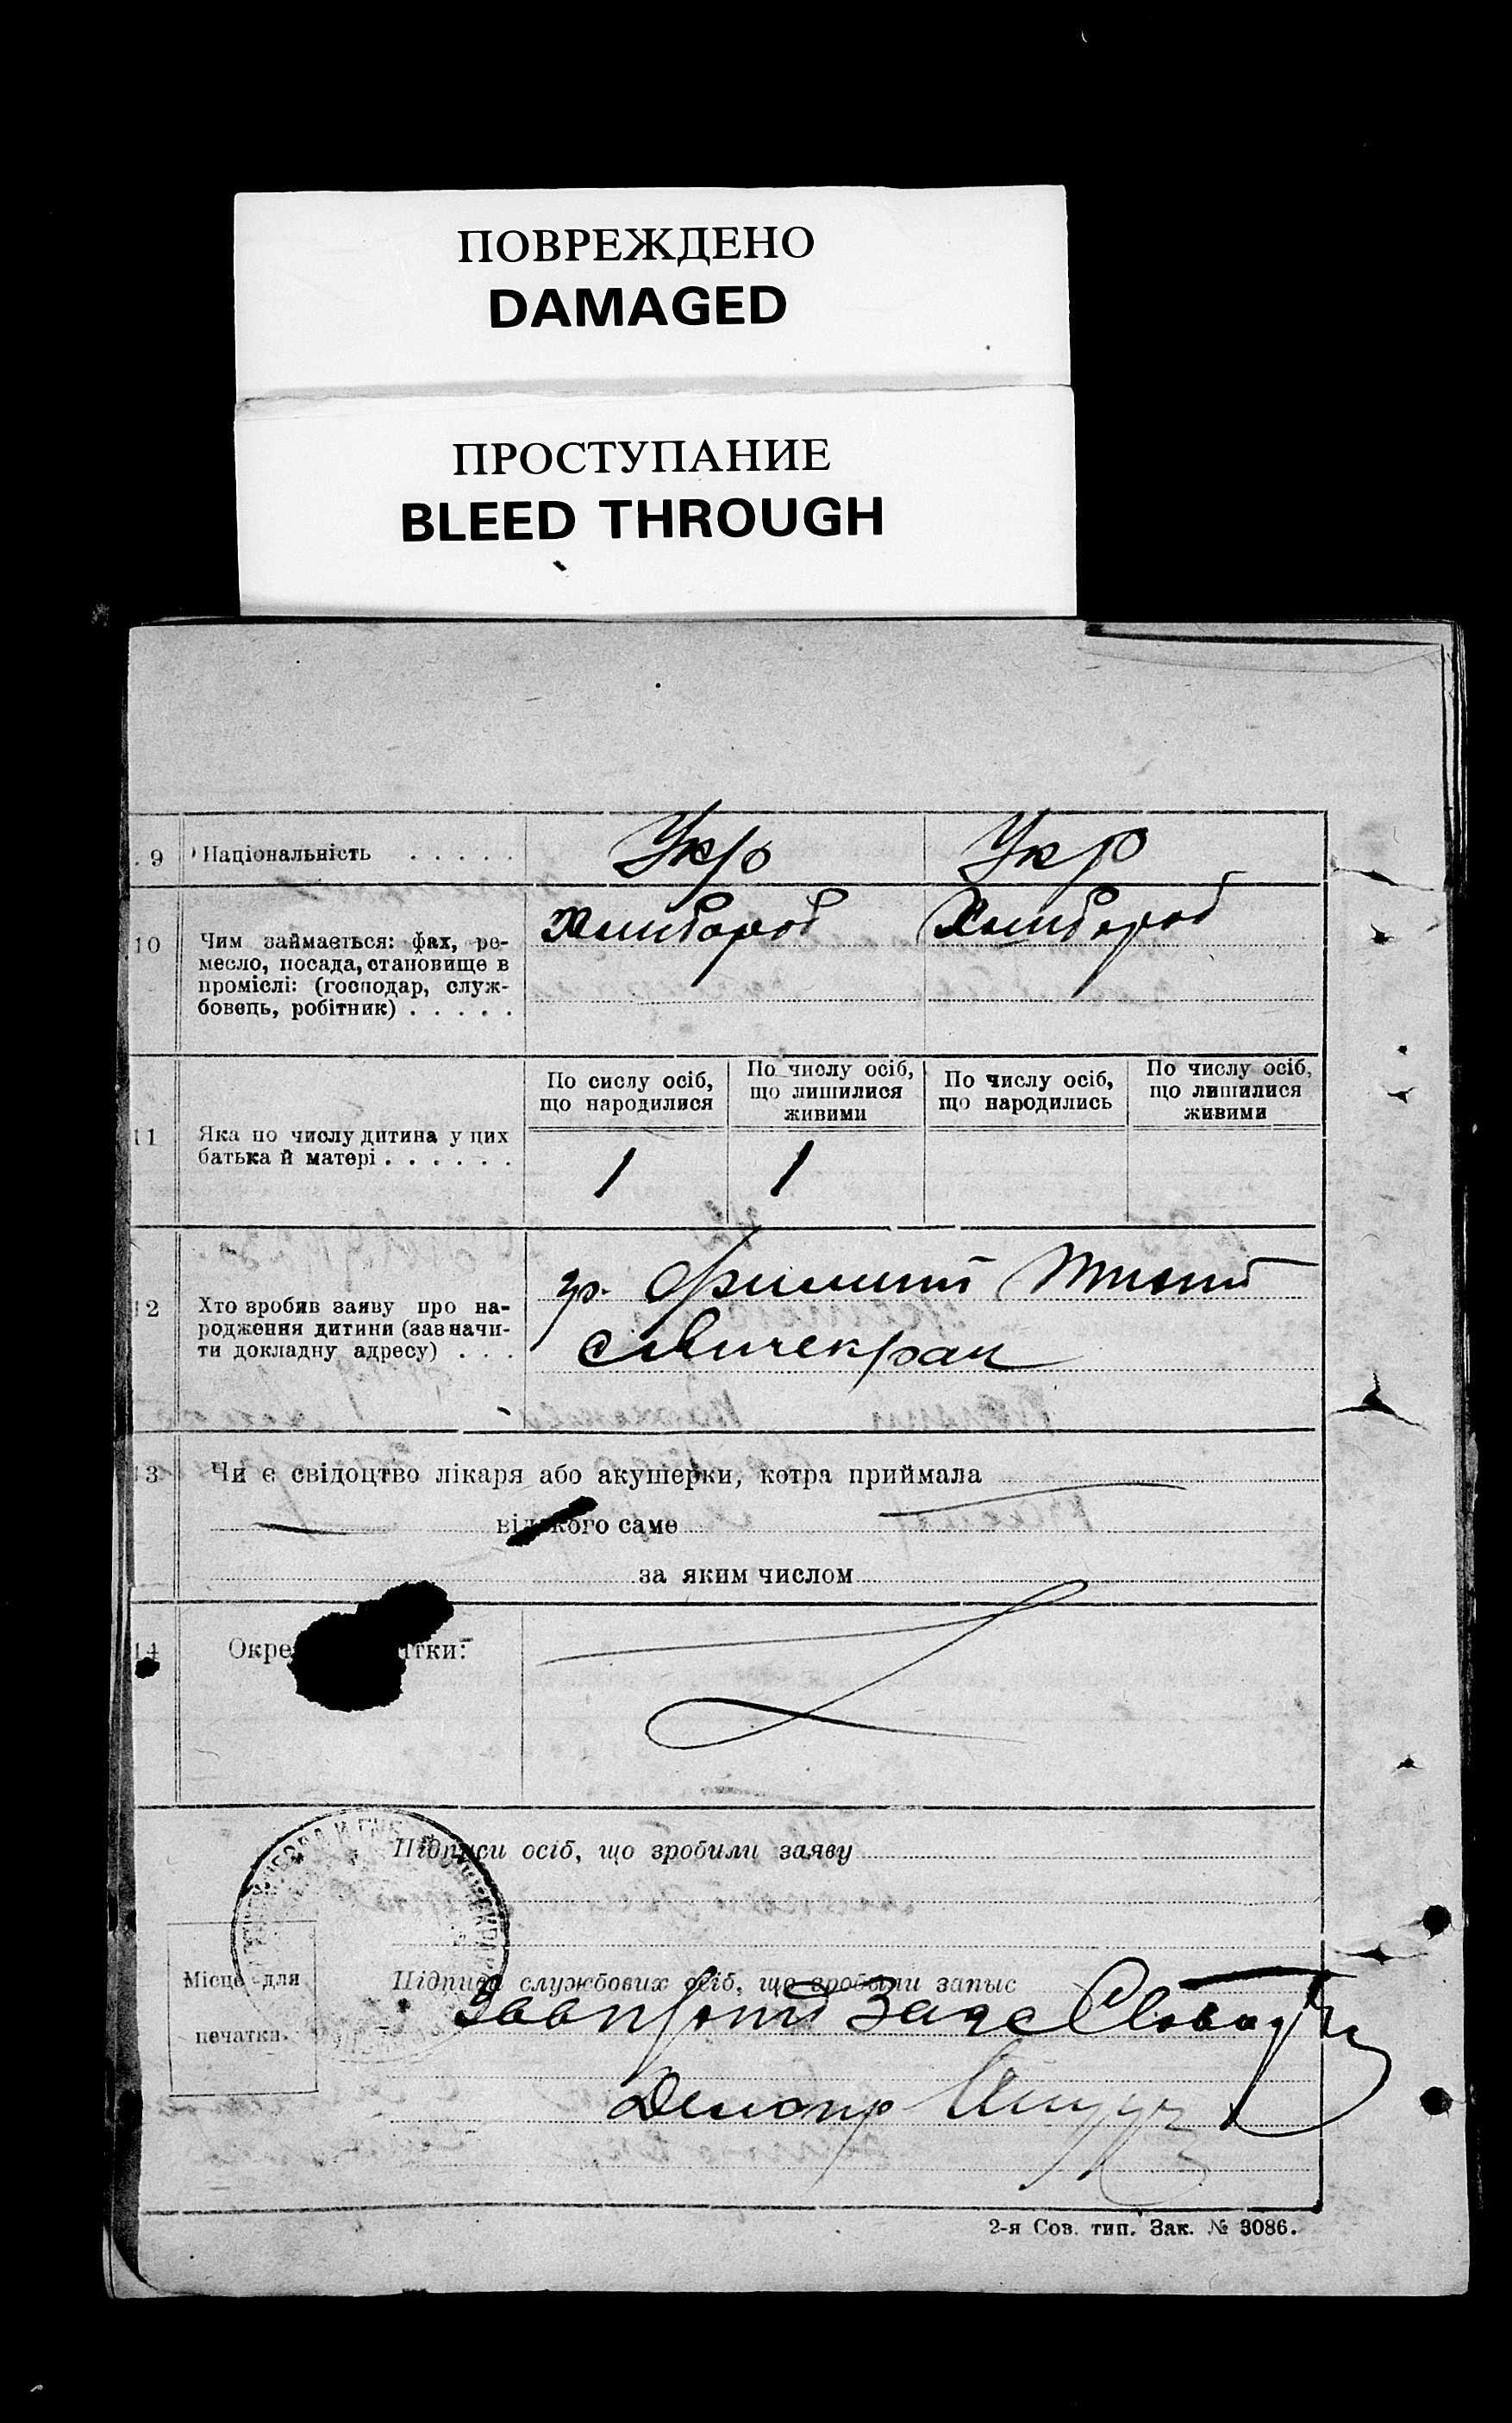 ПОВРЕЖДЕНО
DAMAGED
ПРОСТУПАНИЕ
BLEED THROUGH
9 Національність . . . . . Укр Укр
10 Чим займається: фах, ре-
месло, посада, становище в
проміслі: (господар, служ-
бовець, робітник) . . . . .
Хлибороб Хлибороб
11 Яка по числу дитина у цих
батька й матері . . . . . .
По сислу осіб,
що народилися
По числу осіб,
що лишилися
живими
По числу осіб,
що народились
По числу осіб,
що лишилися
живими
1 1
12 Хто зробив заяву про на-
родження дитини (зазначи-
ти докладну адресу) . . .
гр.
с Вичекрак
13 Чи є свідоцтво лікаря або акушерки, котра приймала
від кого саме
за яким числом
14 Окре тки:
Підписи осіб, що зробили заяву
Місце для
печатки.
Підписи службових осіб, що зробили запыс
Загс
Делопр
2-я Сов. тип. Зак. № 3086.